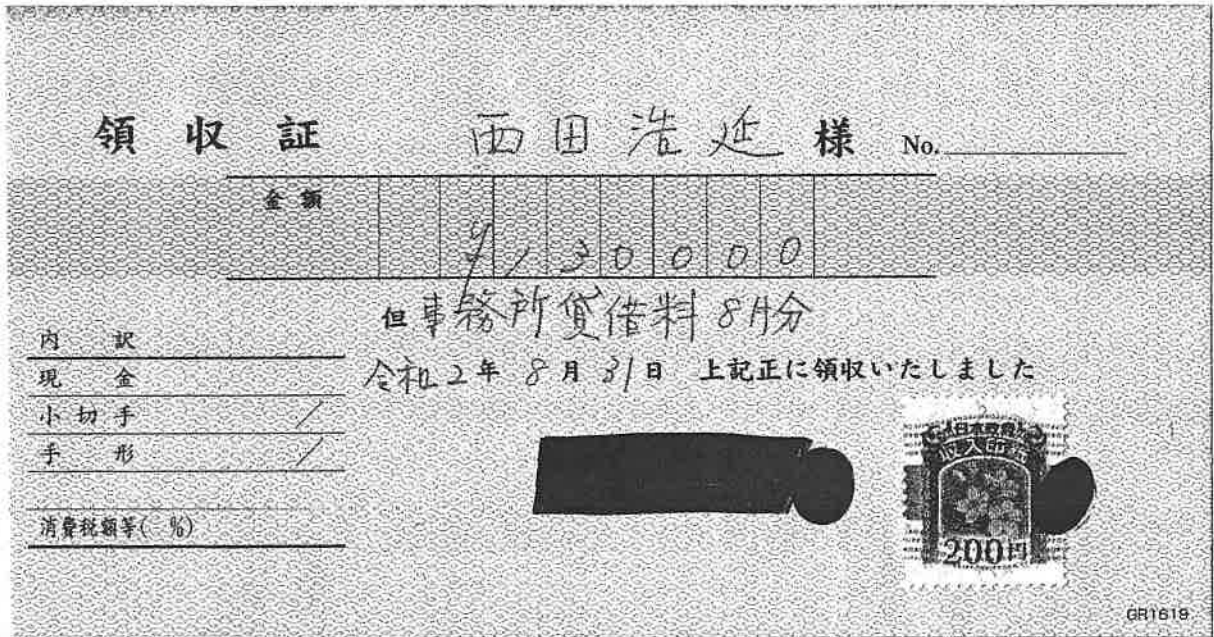 領収証 西田浩延様 No.
金額
¥130000
但事務所賃借料8月分
令和2年8月31日 上記正に領収いたしました
内訳
現金
小切手 /
手形 /
消費税額等( %)
日本政府
収入印紙
200円
GR1619